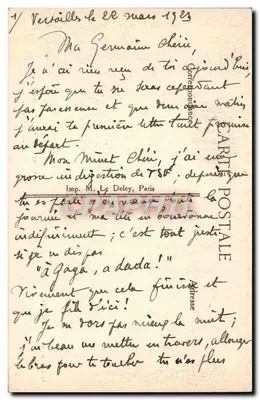 1/ Versailles le 22 mars 1923
Ma Germaine Chérie,
Je n'ai rien reçu de toi aujourd'hui,
j'espère que tu ne seras cependant
pas paresseuse et que demain matin
j'aurai ta première lettre tant promise
au départ.
Mon Minet Chéri, j'ai une
grosse indigestion de depuis que
Imp. M. Le Deley, Paris
tu es partie
journée ma
indéfiniment ; c'est tout juste
si je ne dis pas
"à Gaga, à dada !"
Vivement que cela finisse et
que je file d'ici !
Je ne dors pas mieux la nuit ;
j'ai beau me mettre en travers, allonger
le bras pour te toucher tu n'es plus
CARTE POSTALE
Correspondance
Adresse